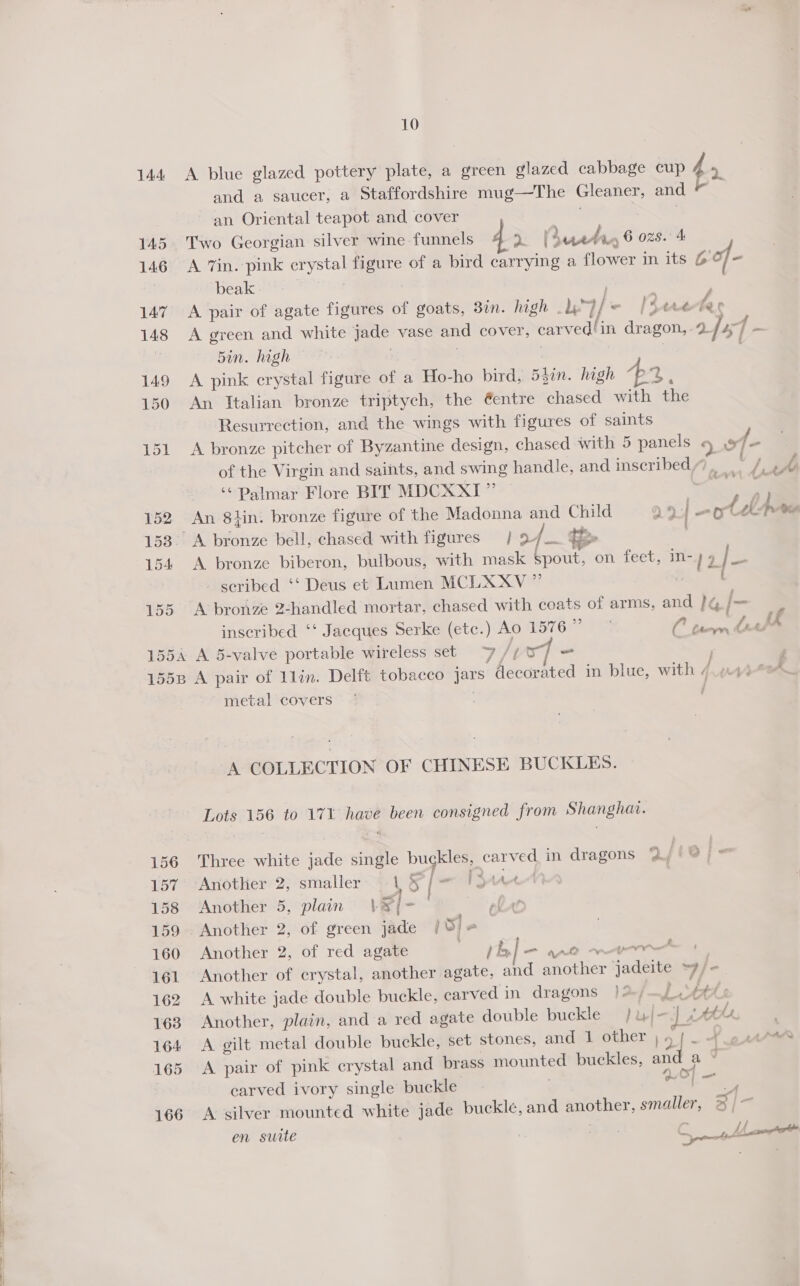 10
144 A blue glazed pottery plate, a green glazed cabbage cup
and a saucer, a Staffordshire mug—The Gleaner, and
an Oriental teapot and cover
145 Two Georgian silver wine funnels 6 ozs. 4
146 A 7in. pink crystal figure of a bird carrying a flower in its
beak
147 A pair of agate figures of goats, 3in. high
148 A green and white jade vase and cover, carved in dragon,
5in. high
149 A pink crystal figure of a Ho-ho bird, 5½in. high
150 An Italian bronze triptych, the centre chased with the
Resurrection, and the wings with figures of saints
151 A bronze pitcher of Byzantine design, chased with 5 panels
of the Virgin and saints, and swing handle, and inscribed
“Palmar Flore BIT MDCXXI”
152 An 8½in. bronze figure of the Madonna and Child
153 A bronze bell, chased with figures
154 A bronze biberon, bulbous, with mask spout, on feet, in-
scribed “Deus et Lumen MCLXXV”
155 A bronze 2-handled mortar, chased with coats of arms, and
inscribed “Jacques Serke (etc.) Ao 1576”
155A A 5-valve portable wireless set
155B A pair of 11in. Delft tobacco jars decorated in blue, with
metal covers
A COLLECTION OF CHINESE BUCKLES.
Lots 156 to 171 have been consigned from Shanghai.
156 Three white jade single buckles, carved in dragons
157 Another 2, smaller
158 Another 5, plain
159 Another 2, of green jade
160 Another 2, of red agate
161 Another of crystal, another agate, and another jadeite
162 A white jade double buckle, carved in dragons
163 Another, plain, and a red agate double buckle
164 A gilt metal double buckle, set stones, and 1 other
165 A pair of pink crystal and brass mounted buckles, and a
carved ivory single buckle
166 A silver mounted white jade buckle, and another, smaller,
en suite